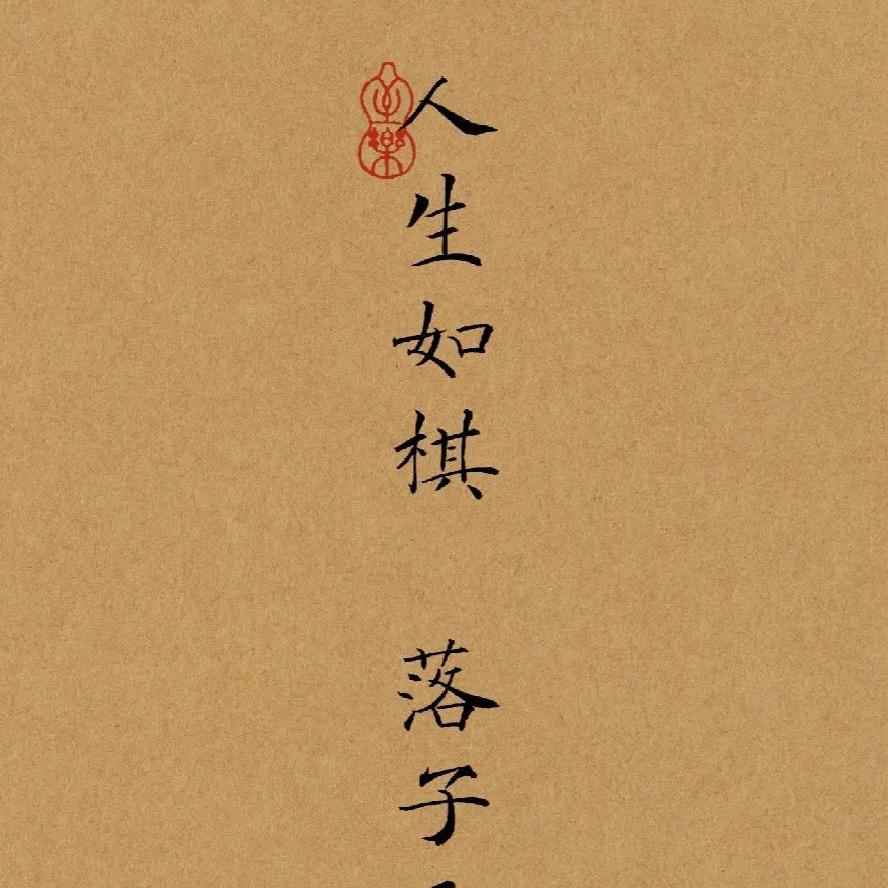 人生如棋 落子